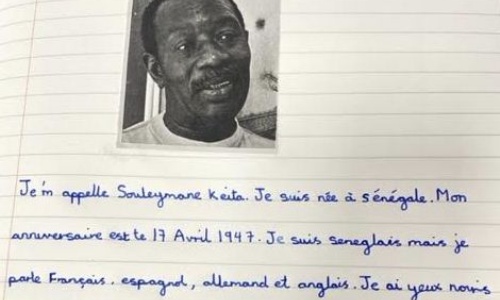 Je'm appelle Souleymane Keita. Je suis née à sénégale. Mon
anniversaire est te 17 Avril 1947. Je suis seneglais mais je
parle Français. espagnol, allemand et anglais. Je ai yeux noirs